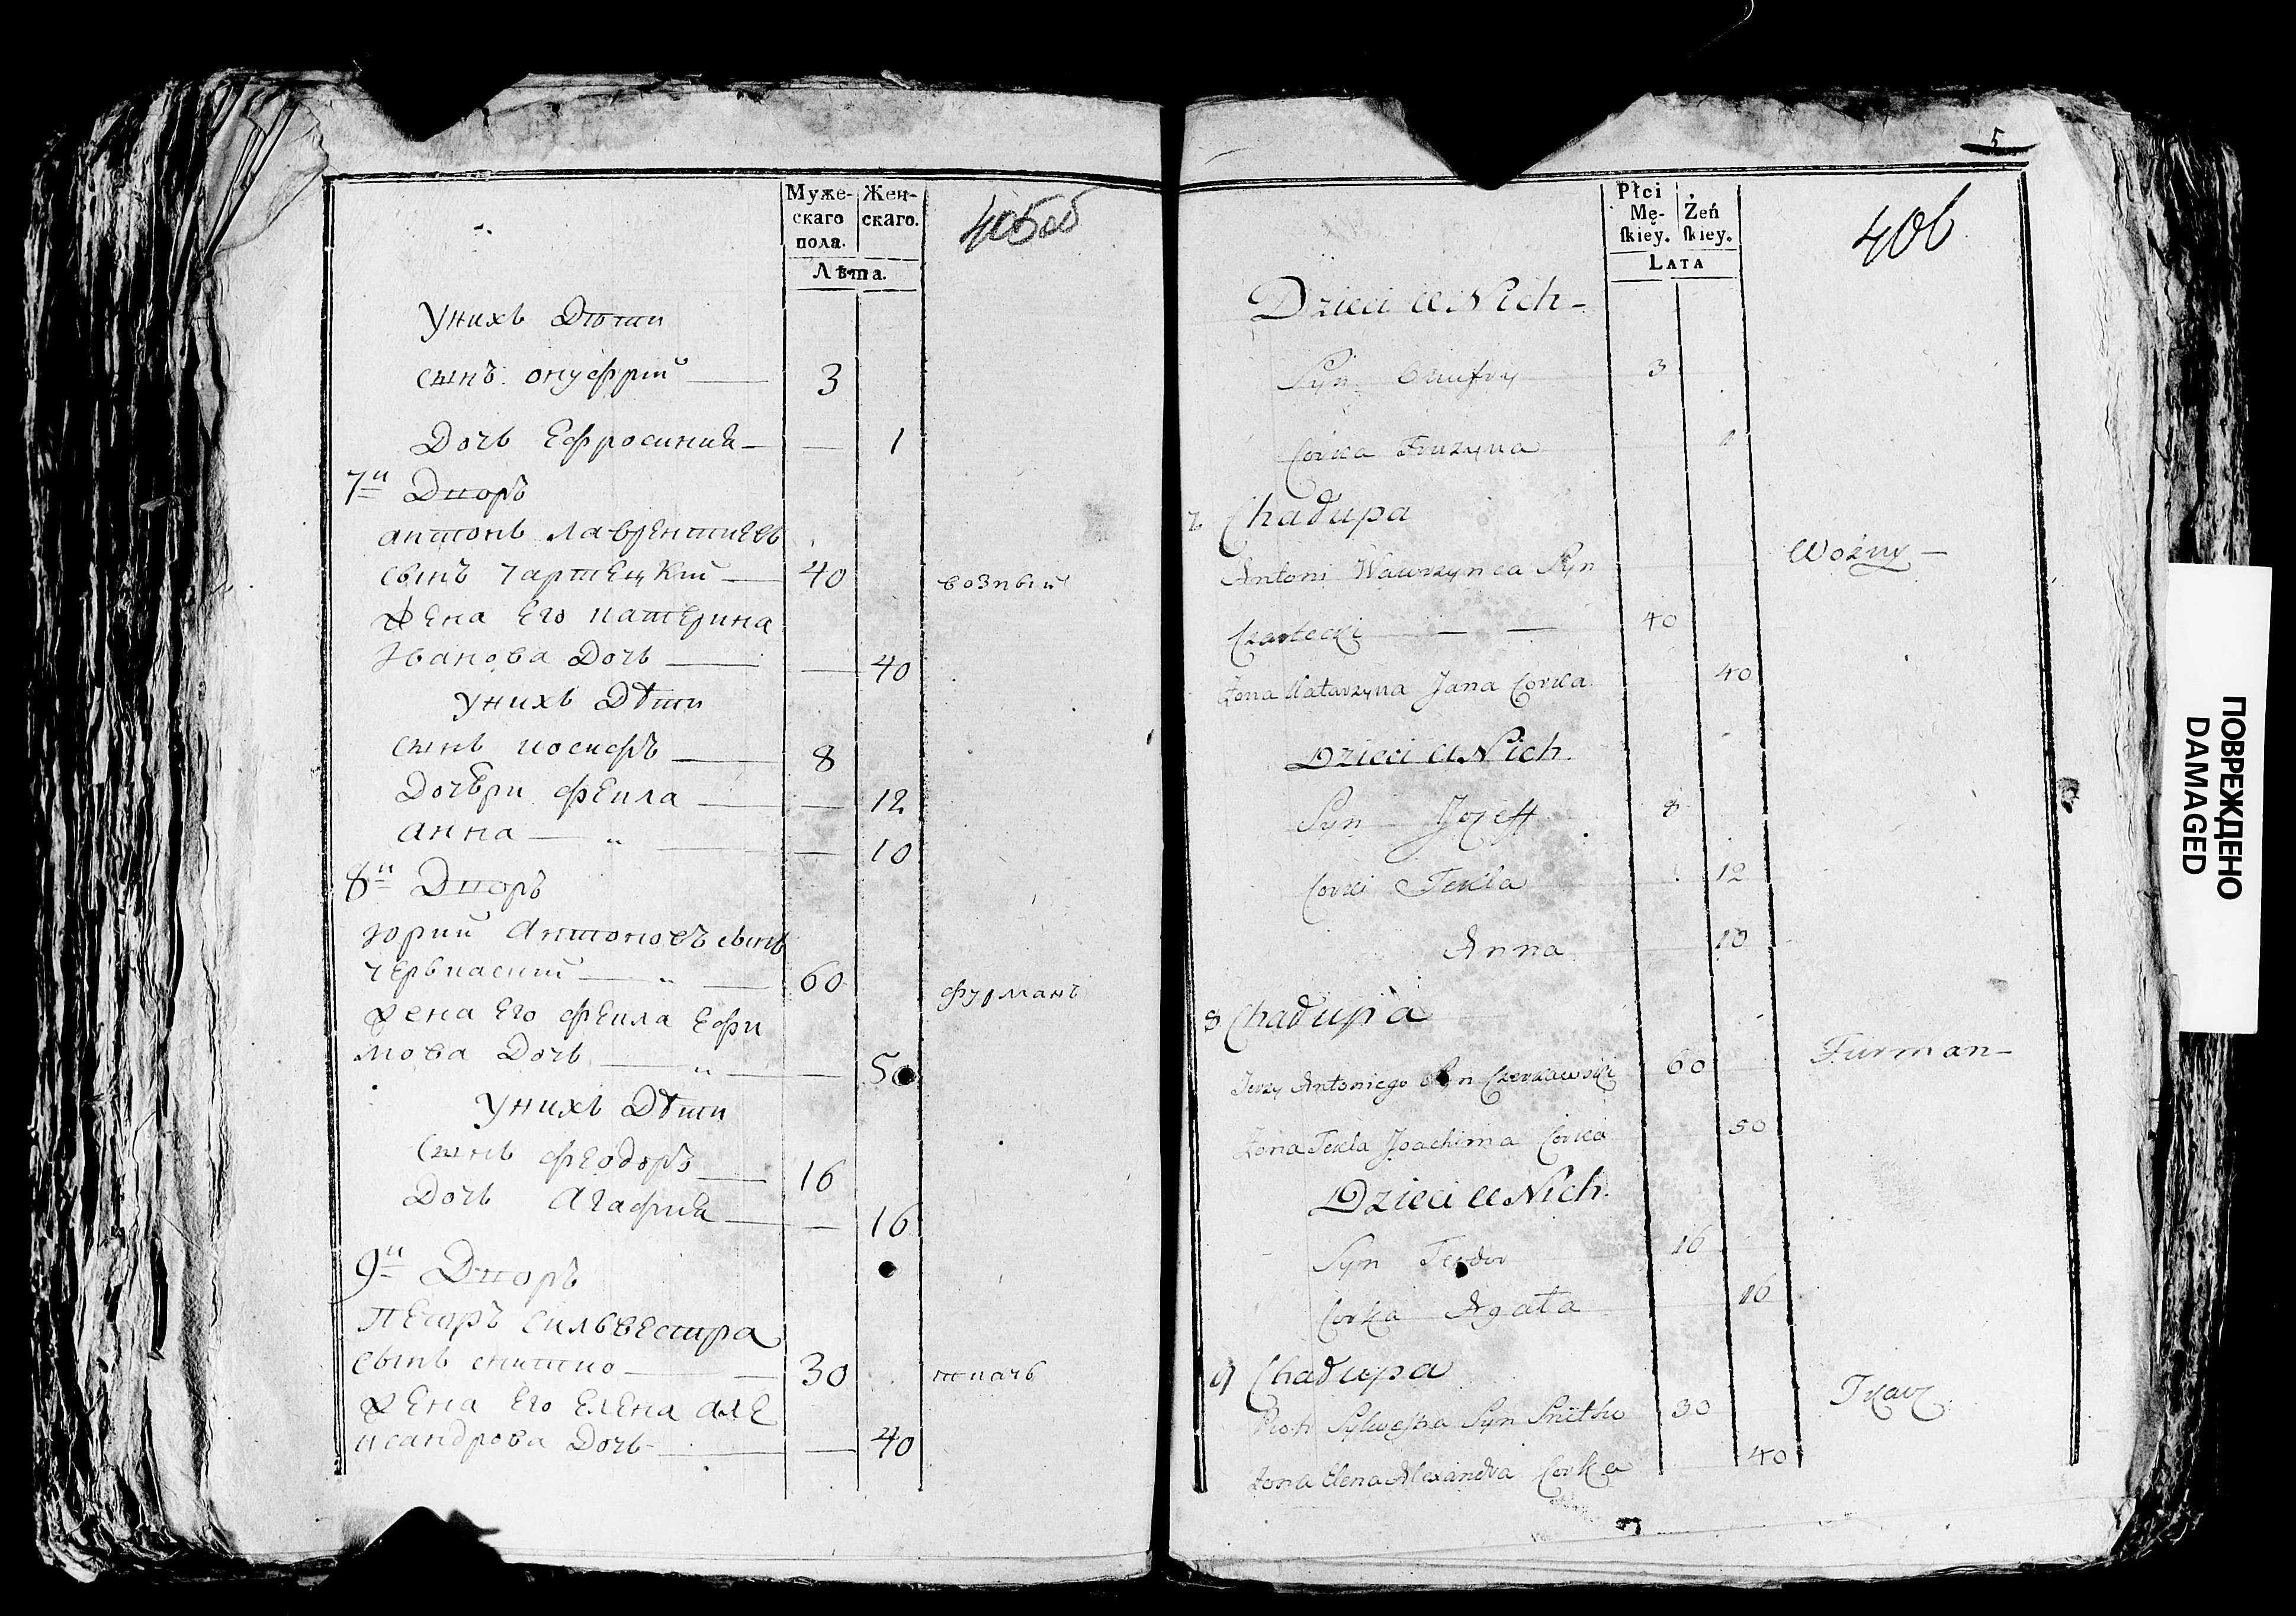 Муже-
скаго
пола.
Жен-
скаго.
Лѣта.
405об
Унихъ Дѣти
сынъ онуфрій 3
Дочь Ефросинія 1
7й Дворъ
антонъ лаврентиевъ
сынъ чартецкій 40 возный
жена его катерина
Иванова Дочь 40
унихъ Дѣти
сынъ иосифъ 8
Дочери фекла 12
анна 10
8й Дворъ
юрий антоновъ сынъ
червкаский 60 фурманъ
жена Его фекла Ефи
мова Дочь 50
унихъ Дѣти
сынъ феодоръ 16
Дочь Агафия 16
9й Дворъ
петръ силвестра
сынъ снитко 30 ткачь
жена Его Елена але
ксандрова Дочь 40
5
Płci
Mę-
skiey.
Żeń
skiey.
LATA
406
Dzieci u Nich
Syn Onufry 3
Corka Fruzyna 1
7 Chałupa
Antoni Wawrzynca Syn Woźny
Czartecki 40
Żona Katarzyna Jana Corka 40
Dzieci u Nich
Syn Jozeff 8
Corki Tekla 12
Anna 10
8 Chałupa
Jerzy Antoniego Syn Czerkawski 60 Furman
Żona Tekla Joachima Corka 50
Dzieci u Nich
Syn Teodor 16
Corka Agata 16
9 Chałupa
Piotr Sylwestra Syn Snitko 30 Tkacz
Żona Elena Alexandra Corka 40
ПОВРЕЖДЕНО
DAMAGED